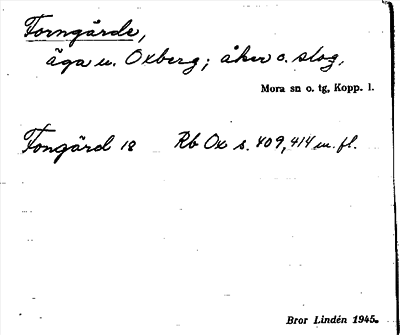 Forngärde,
äga u. Oxberg; åker o. slog,
Mora sn o. tg, Kopp. l.
Fongärd 18 Rb Ox s. 409, 414 m. fl.
Bror Lindén 1945.